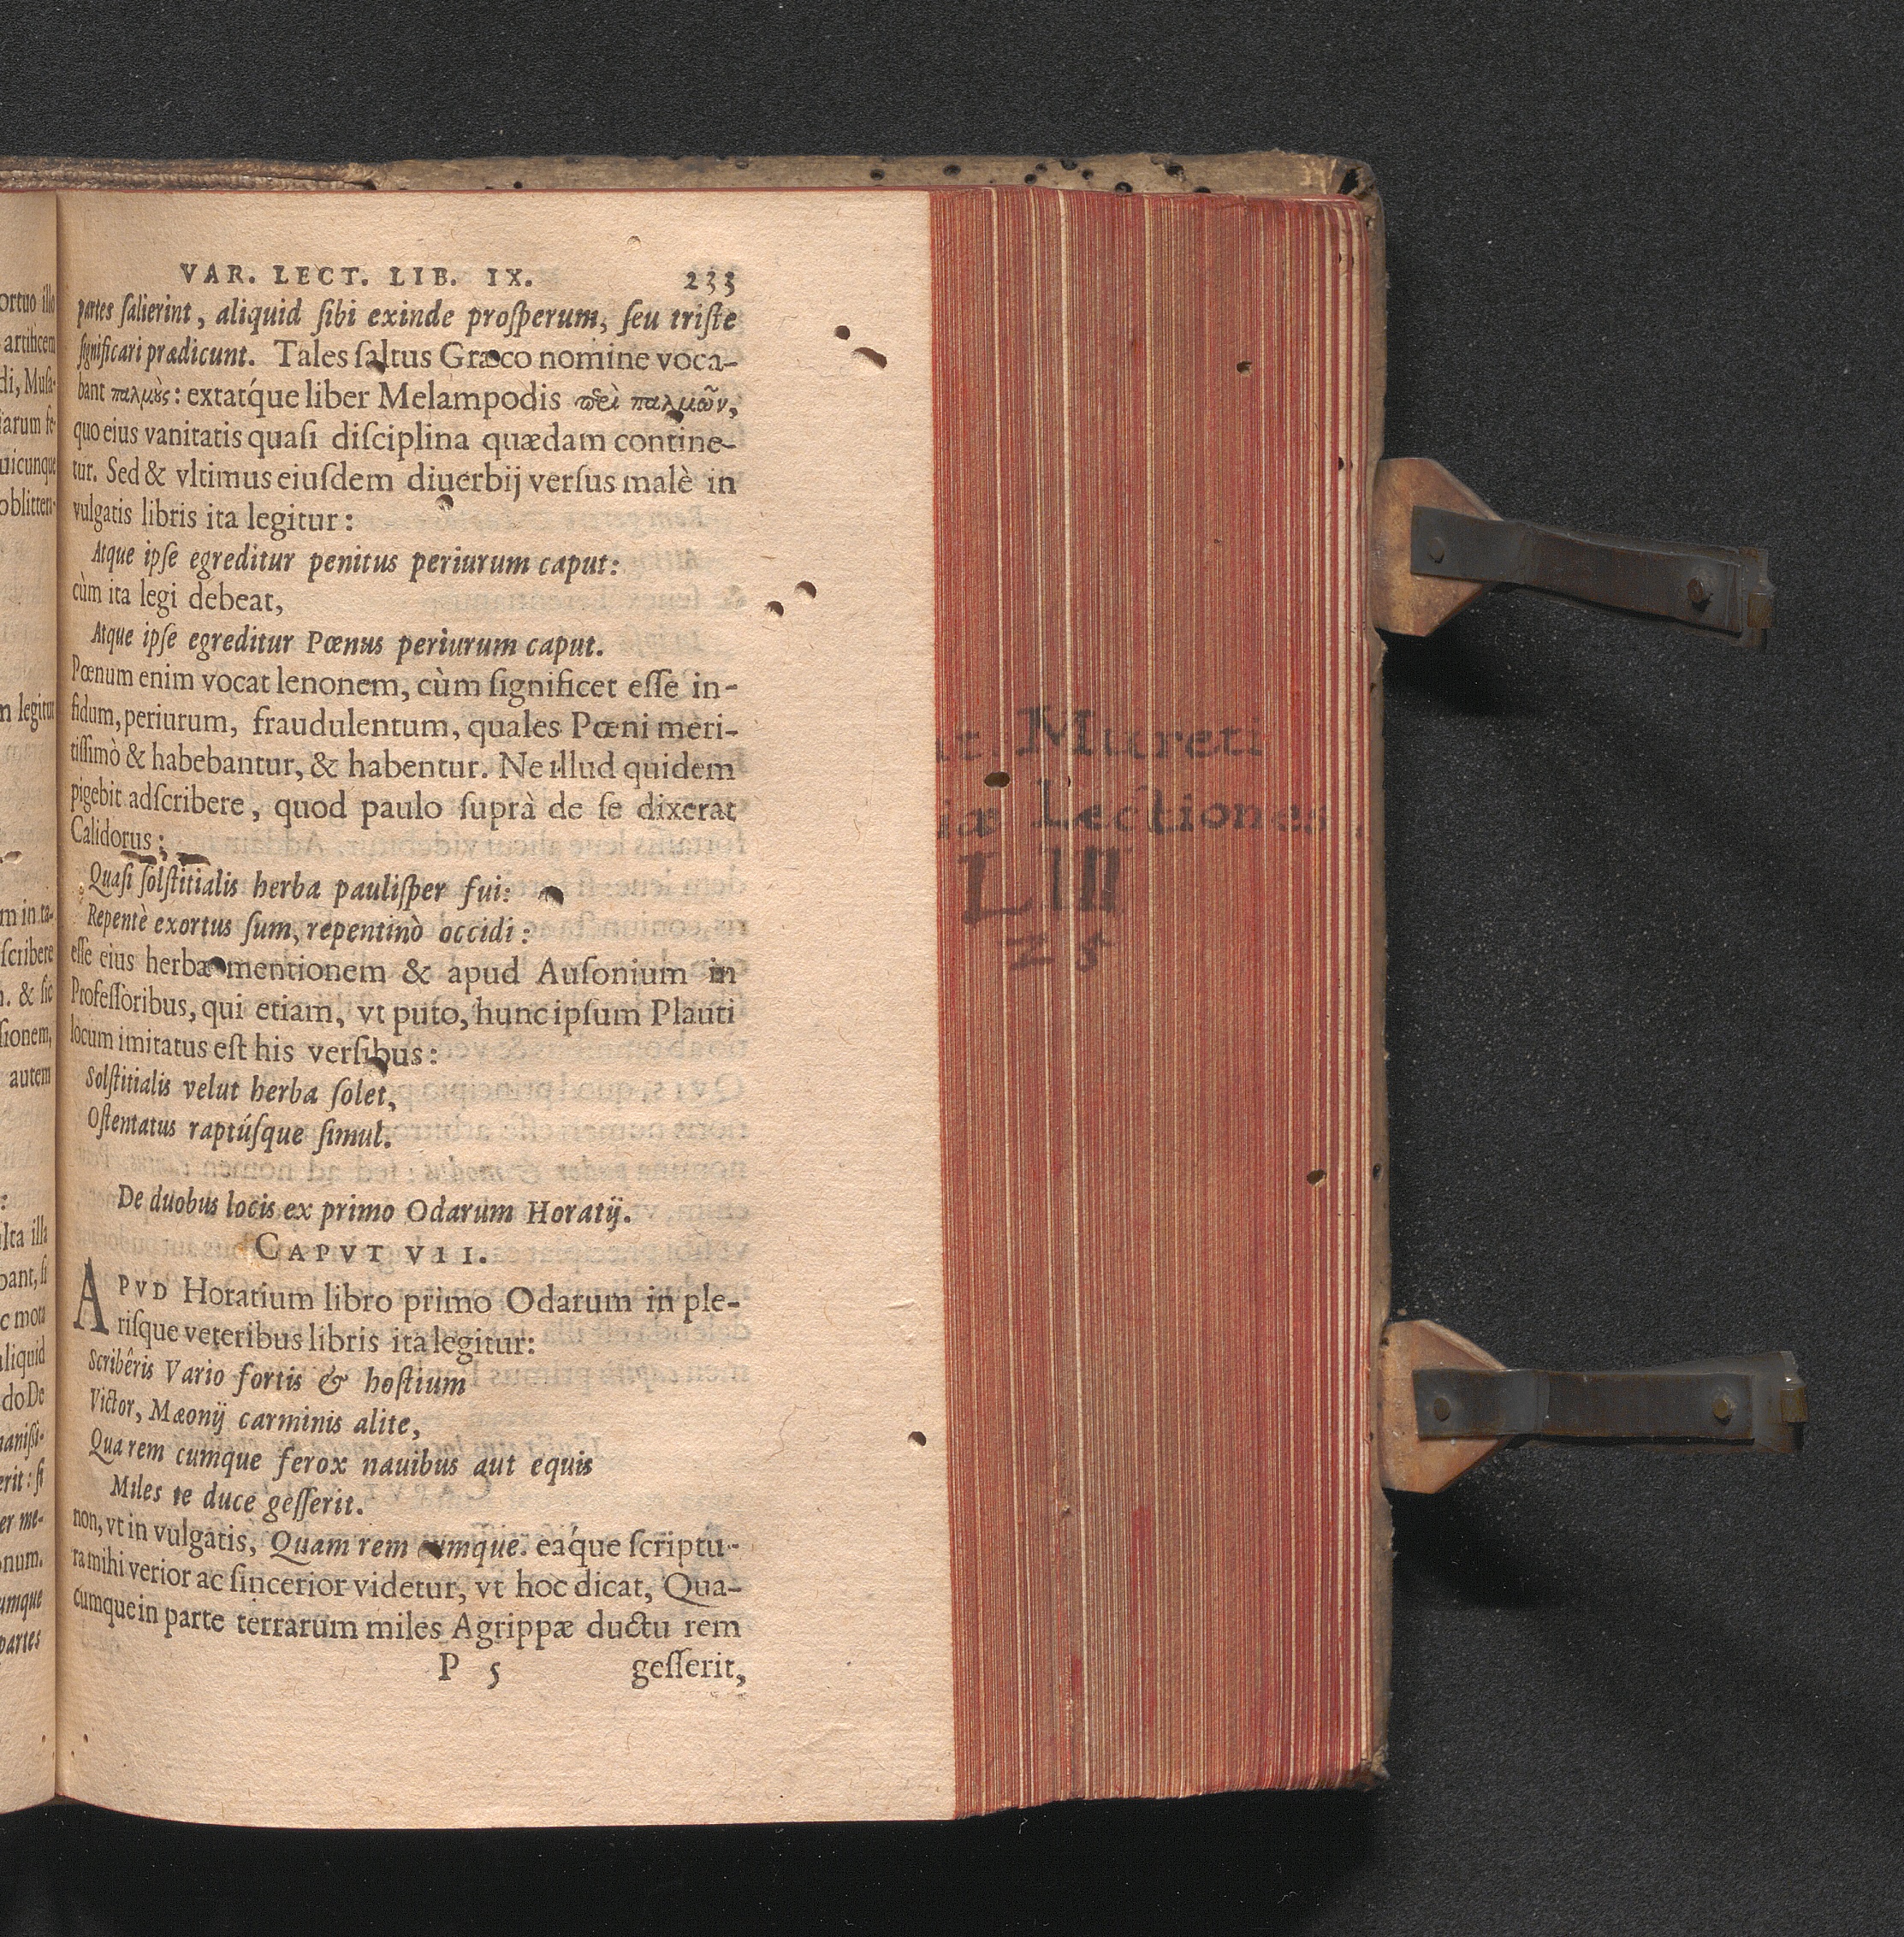 VAR. LECT. LIB. IX. 233
partes ſalierint, aliquid ſibi exinde proſperum, ſeu triſte
ſignificari prædicunt. Tales ſaltus Græco nomine voca-
bant παλμοὺς: extatq́ue liber Melampodis περὶ παλμῶν,
quo eius vanitatis quaſi diſciplina quædam contine-
tur. Sed & vltimus eiuſdem diuerbij verſus malè in
vulgatis libris ita legitur:
Atque ipſe egreditur penitus periurum caput:
cùm ita legi debeat,
Atque ipſe egreditur Pœnus periurum caput.
Pœnum enim vocat lenonem, cùm ſignificet eſſe in-
fidum, periurum, fraudulentum, quales Pœni meri-
tiſſimò & habebantur, & habentur. Ne illud quidem
pigebit adſcribere, quod paulo ſuprà de ſe dixerat
Calidorus;
Quaſi ſolſtitialis herba pauliſper fui:
Repentè exortus ſum, repentinò occidi:
eſſe eius herbæ mentionem & apud Auſonium in
Profeſſoribus, qui etiam, vt puto, hunc ipſum Plauti
locum imitatus eſt his verſibus:
Solſtitialis velut herba ſolet,
Oſtentatus raptúſque ſimul.
De duobus locis ex primo Odarum Horatij.
CAPVT VII.
APVD Horatium libro primo Odarum in ple-
riſque veteribus libris ita legitur:
Scribêris Vario fortis & hoſtium
Victor, Mæonij carminis alite,
Qua rem cumque ferox nauibus aut equis
Miles te duce geſſerit.
non, vt in vulgatis, Quam rem cumque. eáque ſcriptu-
ra mihi verior ac ſincerior videtur, vt hoc dicat, Qua-
cumque in parte terrarum miles Agrippæ ductu rem
P 5 geſſerit,
Mureti
Lectiones
L III
25